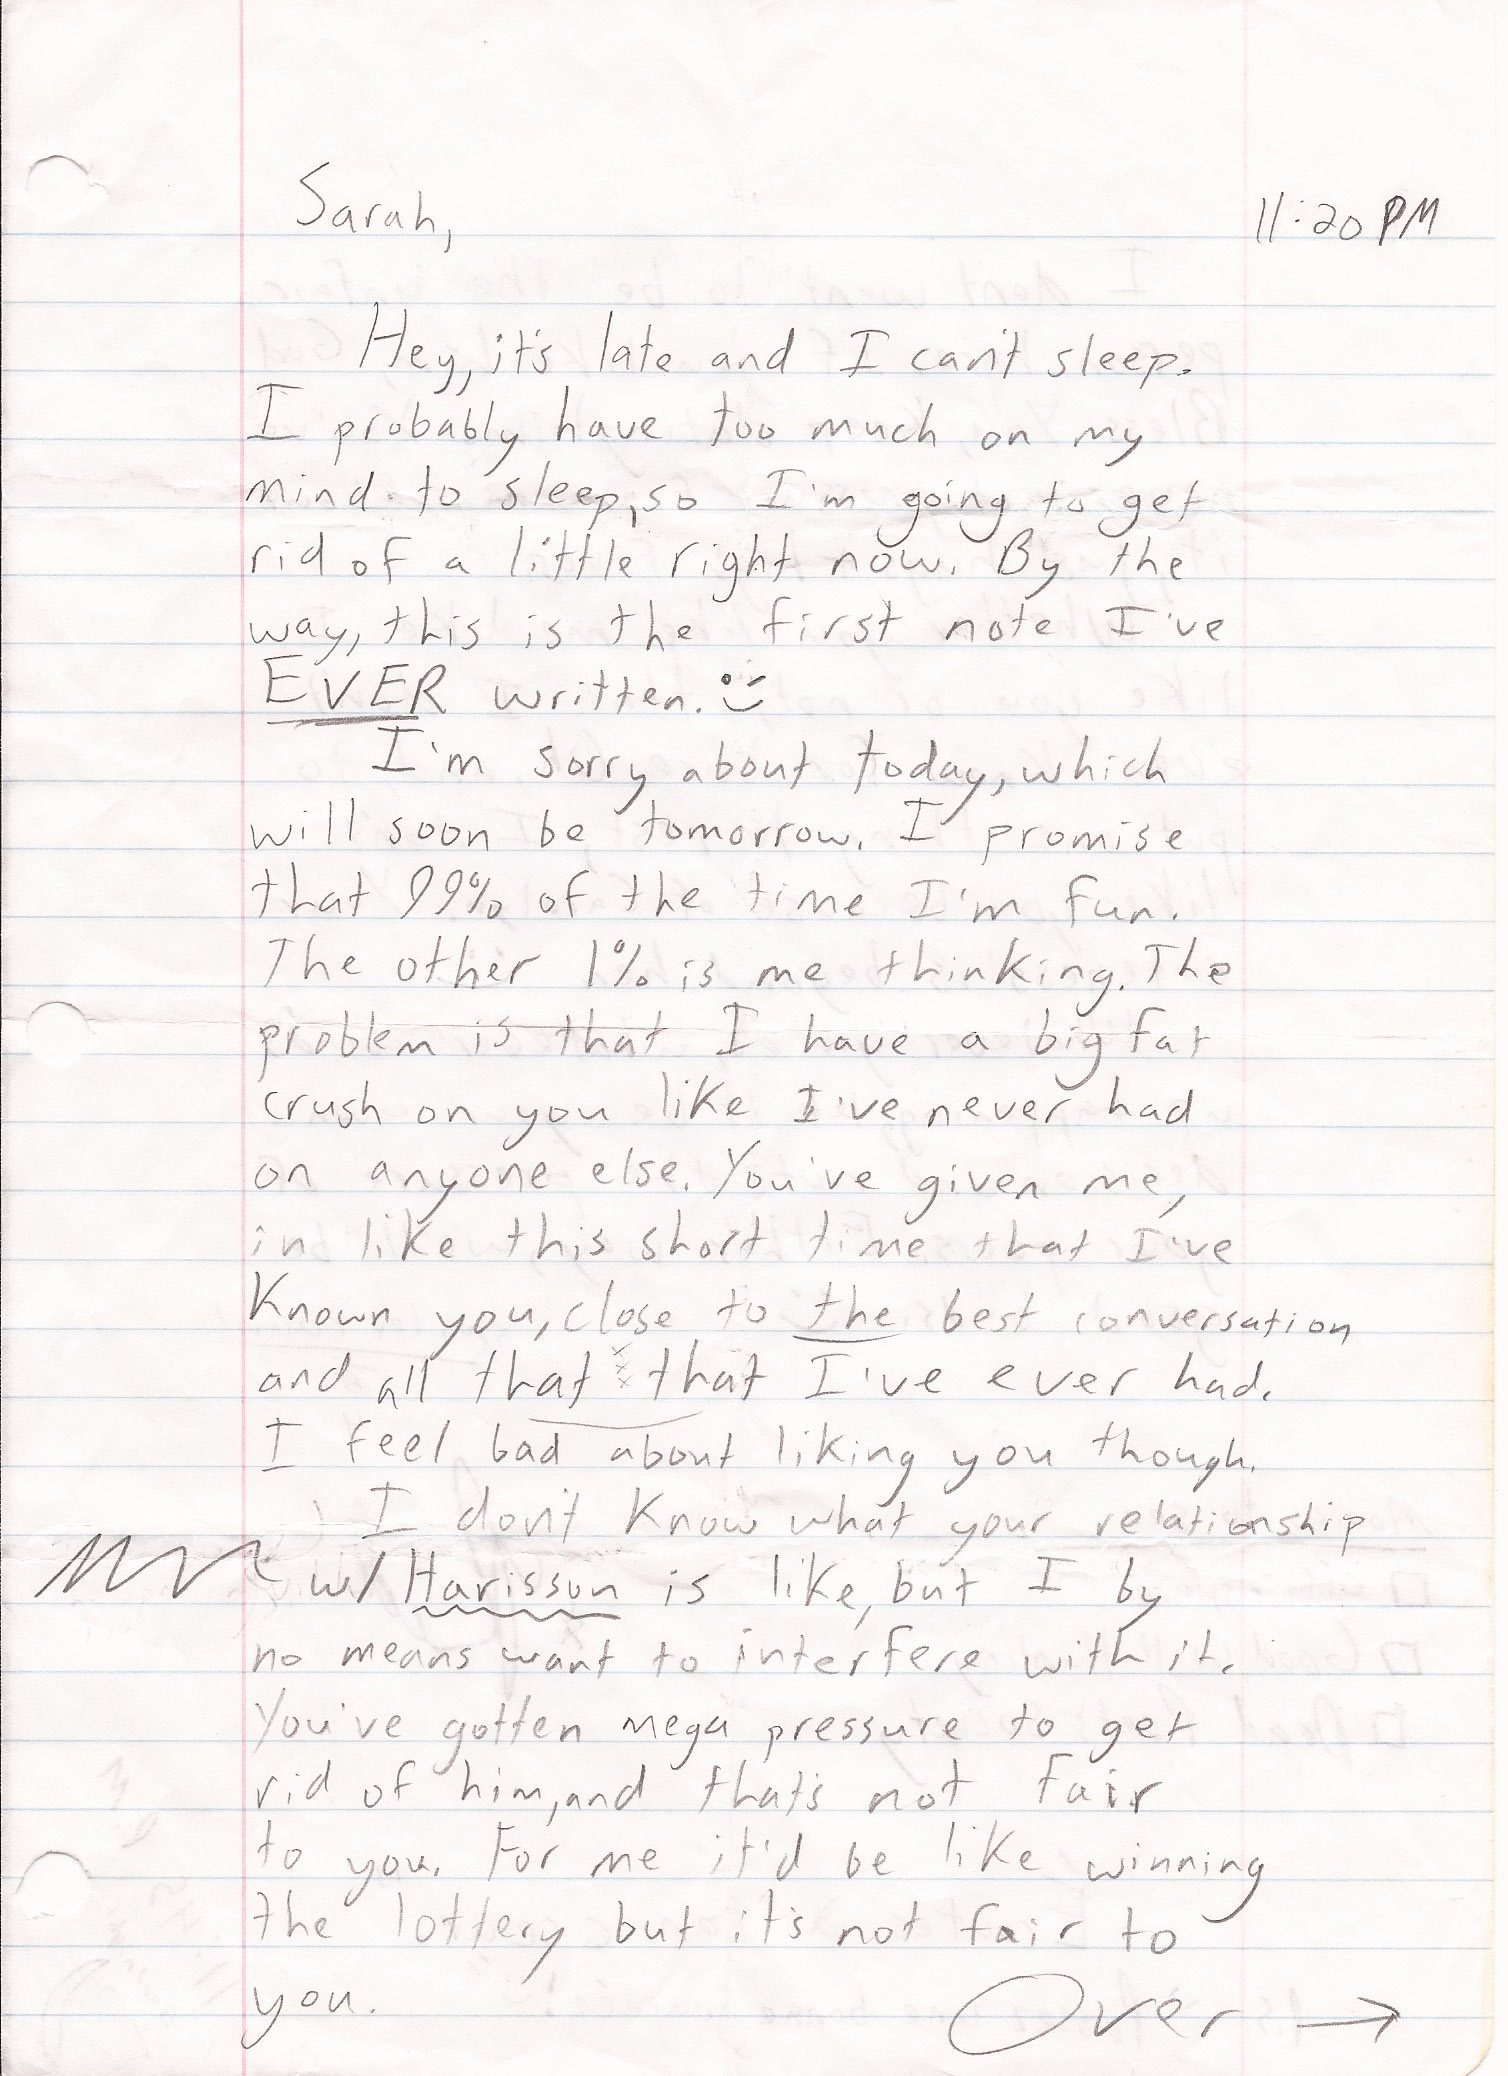 Sarah,
11:20 PM
Hey, it's late and I can't sleep.
I probably have too much on my
mind to sleep, so I'm going to get
rid of a little right now. By the
way, this is the first note I've
EVER written.
I'm sorry about today, which
will soon be tomorrow. I promise
that 99% of the time I'm fun.
The other 1% is me thinking. The
problem is that I have a big fat
crush on you like I've never had
on anyone else. You've given me,
in like this short time that I've
known you, close to the best conversation
and all that that I've ever had.
I feel bad about liking you though.
I don't know what your relationship
w/ Harisson is like, but I by
no means want to interfere with it.
You've gotten mega pressure to get
rid of him, and that's not fair
to you. For me it'd be like winning
the lottery but it's not fair to
you.
Over →